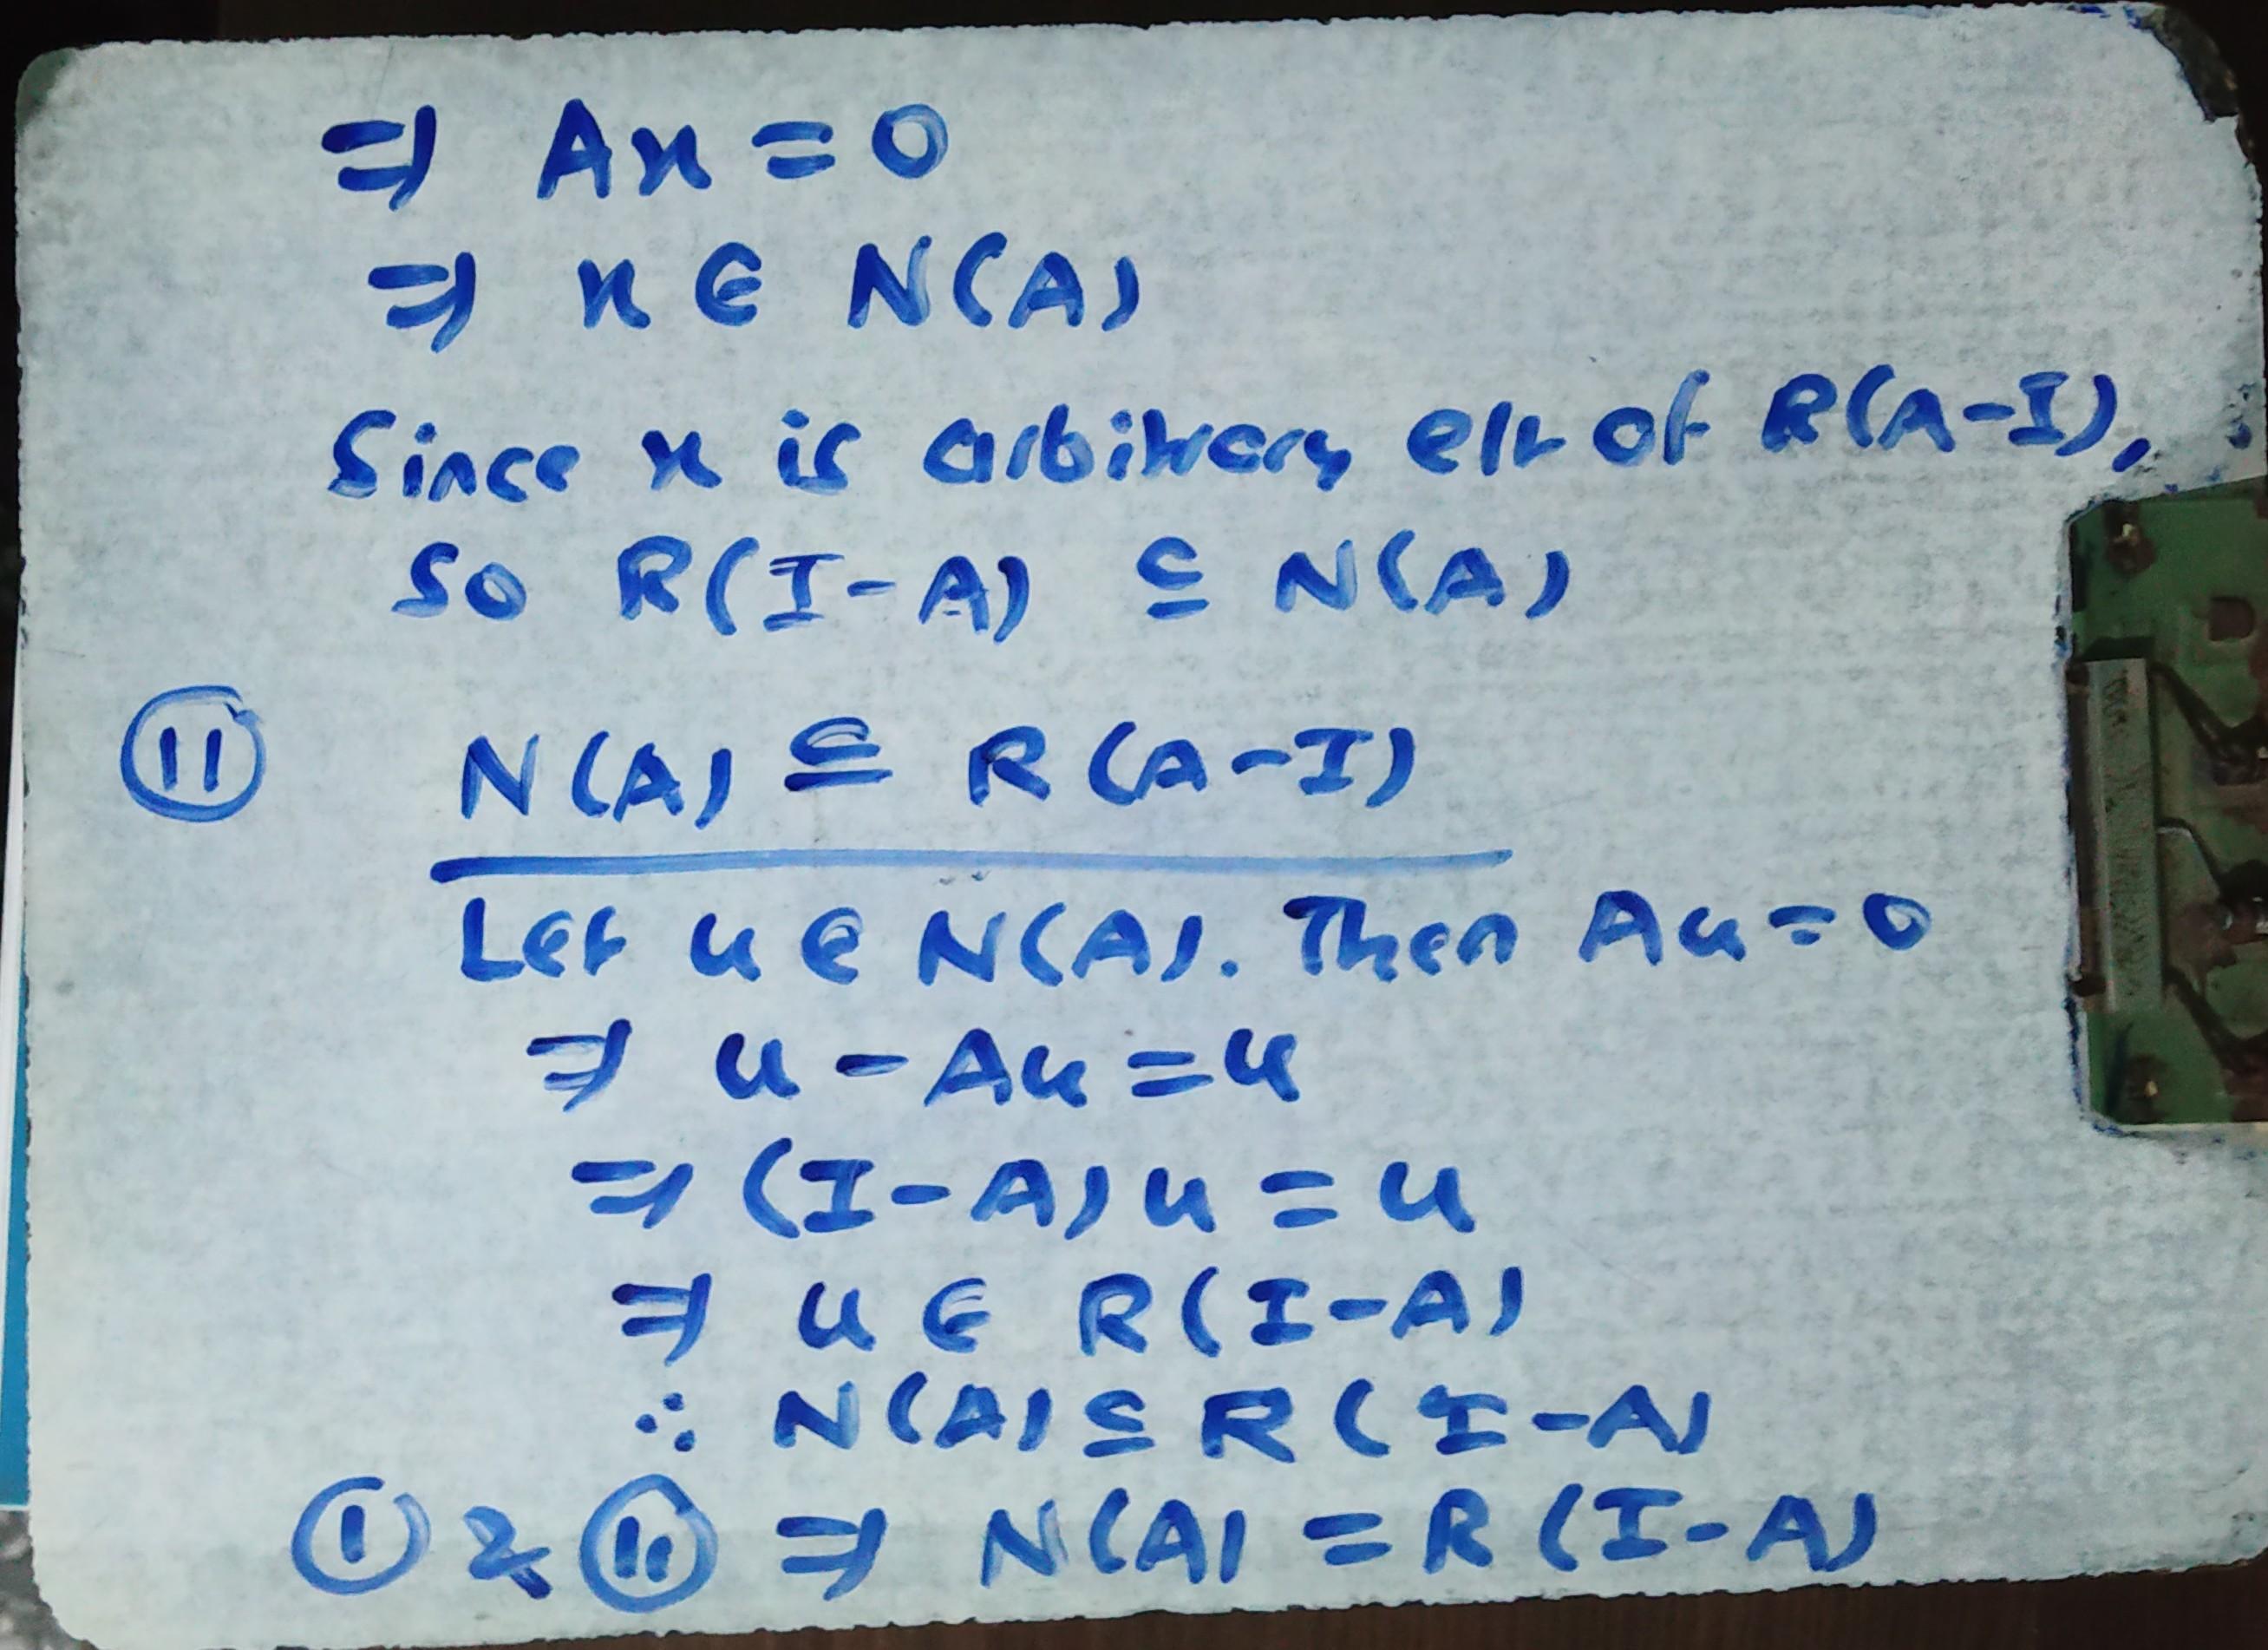 ⇒ Ax = 0
⇒ x ∈ N(A)
Since x is arbitrary elt of R(A-I),
So R(I-A) ⊆ N(A)
(ii) N(A) ⊆ R(A-I)
Let u ∈ N(A). Then Au = 0
⇒ u - Au = u
⇒ (I-A)u = u
⇒ u ∈ R(I-A)
∴ N(A) ⊆ R(I-A)
(i) & (ii) ⇒ N(A) = R(I-A)